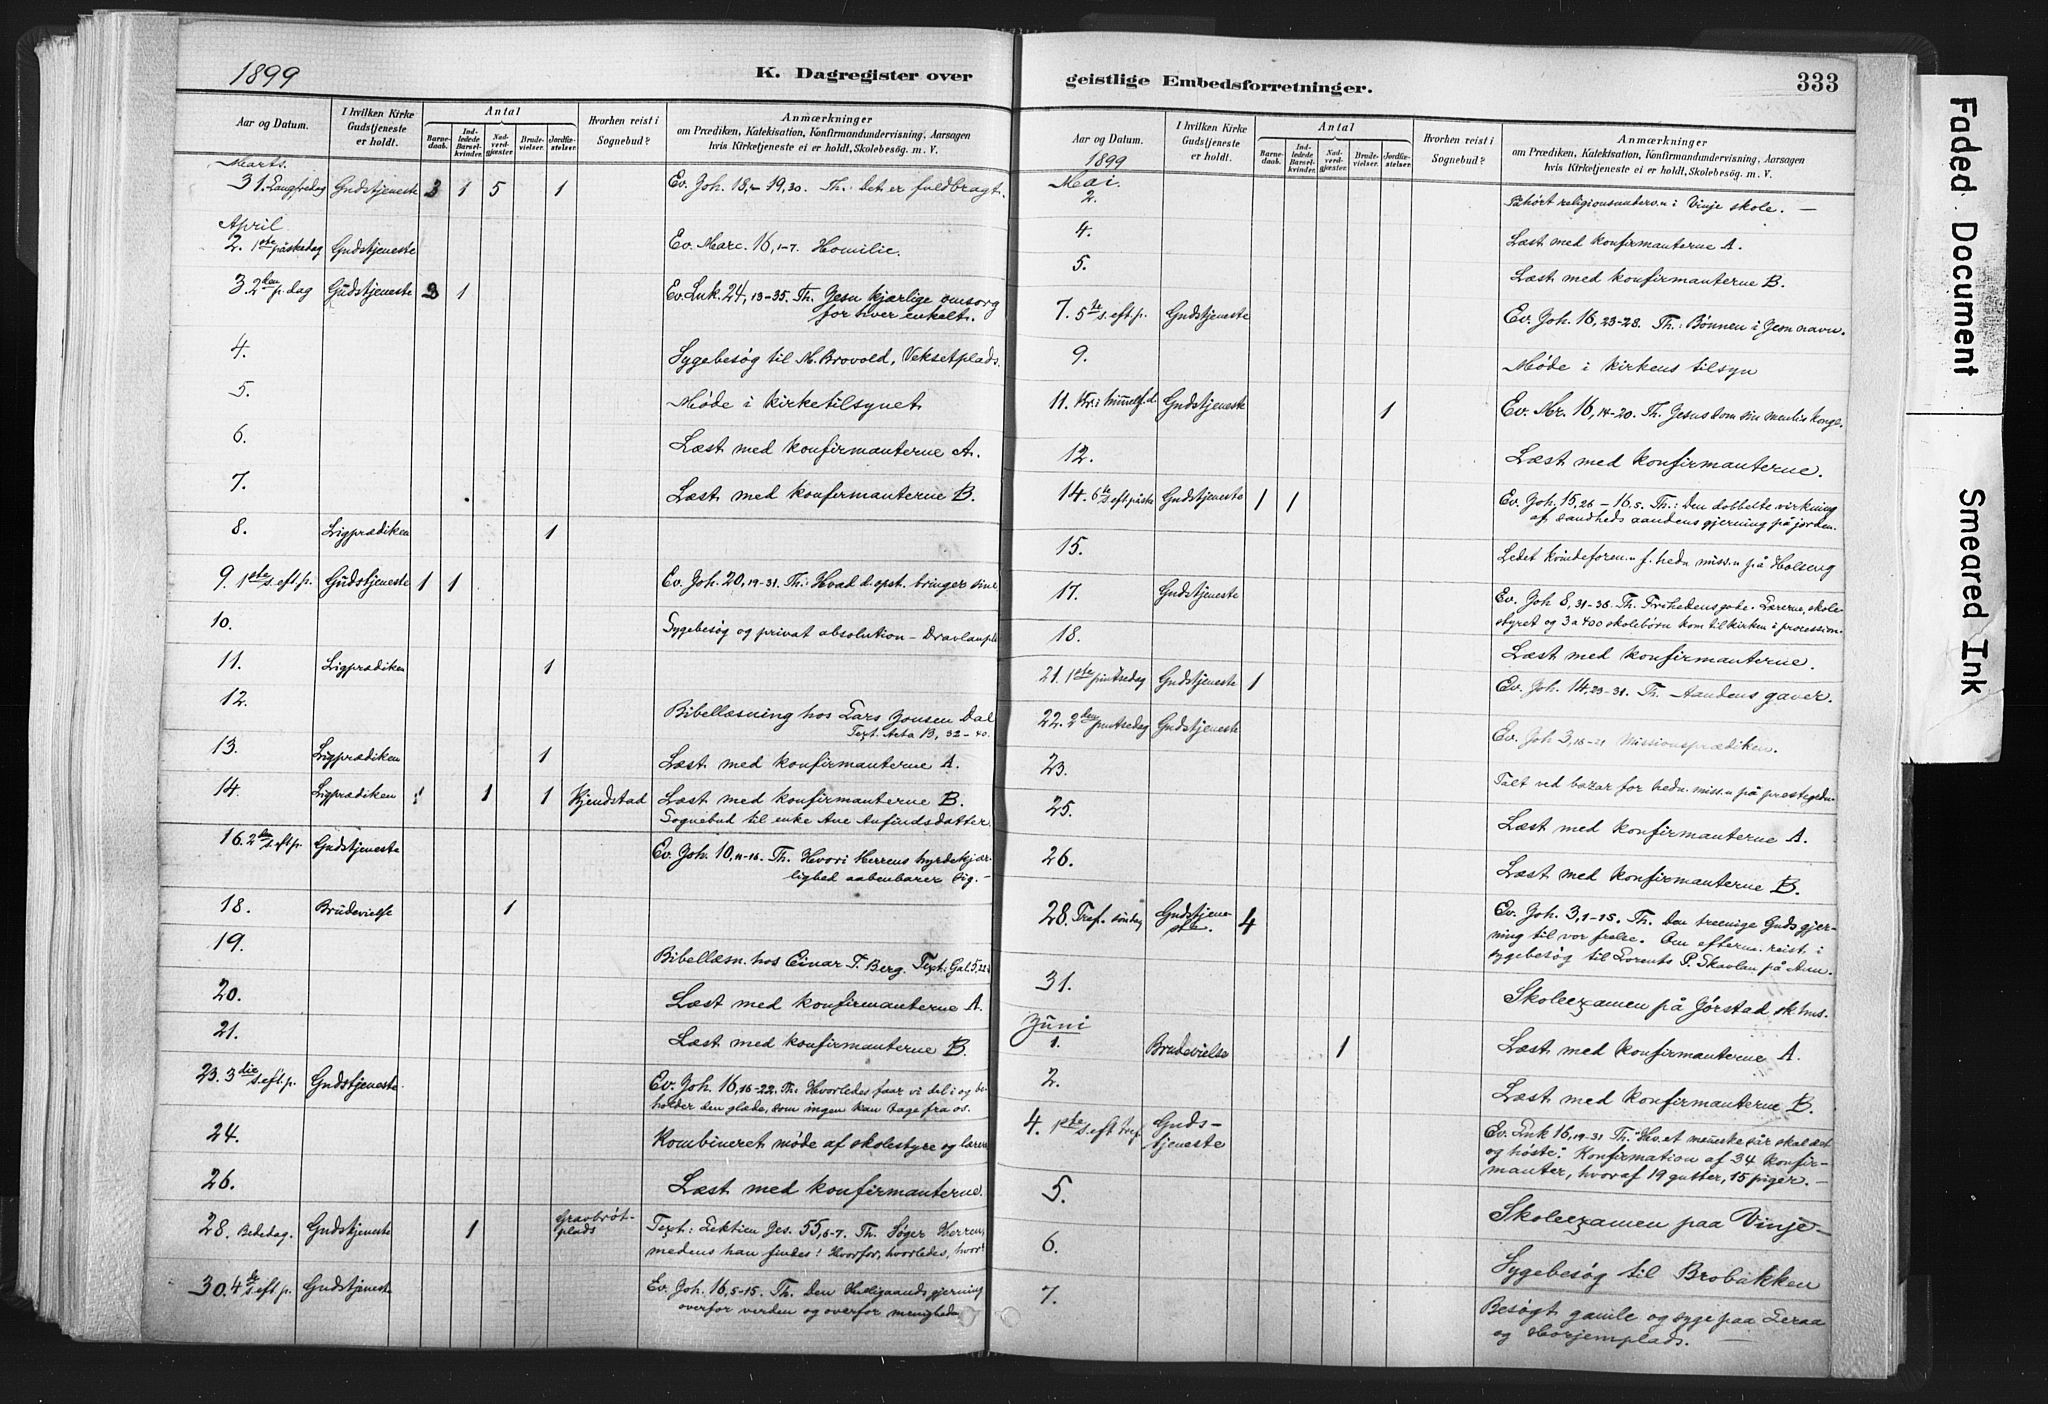 1899
K. Dagregister over
Aar og Datum.
I hvilken Kirke Gudstjeneste er holdt.
Antal
Barnedaab.
Indledede Barselkvinder.
Nadverdgjæster
Brudevielser.
Jordfæstelser.
Hvorhen reist i Sognebud?
Anmærkninger
om Prædiken, Katekisation, Konfirmandundervisning, Aarsagen
hvis Kirketjeneste ei er holdt, Skolebesøg. m. V.
Marts.
31. Langfredag Gudstjeneste 3 1 5 1 Ev. Joh. 18, - 19,30. Th.: Det er fuldbragt.
April
2. 1ste påskedag Gudstjeneste Ev. Marc. 16, 1-7. Homilie.
3. 2den p. dag Gudstjeneste 3 1 Ev. Luk. 24, 13-35. Th. Jesu kjærlige omsorg
for hver enkelt.
4. Sygebesøg til M. Brovold, Veksetplads.
5. Møde i kirketilsynet
6. Læst med konfirmanterne A.
7. Læst med konfirmanterne B.
8. Ligprædiken 1
9. 1ste s. eft. p. Gudstjeneste 1 1 Ev. Joh. 20, 19-31. Th.: Hvad d. opst. bringer sine
10. Sygebesøg og privat absolution -
11. Ligprædiken 1
12. Bibellæsning hos Lars Jonsen Dal
Text. Acta 13, 32-40.
13. Ligprædiken 1 Læst med konfirmanterne A.
14. Ligprædiken 1 1 Kjendstad Læst med konfirmanterne B.
Sognebud til enke Ane Anfindsdatter.
16. 2den s. eft p. Gudstjeneste Ev. Joh. 10, 11-16. Th. Hvori Herrens hyrdekjær-
lighed aabenbarer sig. -
18. Brudevielse 1
19. Bibellæsn. hos Einar T. Berg. Text: Gal. 5,
20. Læst med konfirmanterne A.
21. Læst med konfirmanterne B.
23. 3die s. eft. p. Gudstjeneste Ev. Joh. 16, 16-22. Th: Hvorledes faar vi del i og be-
holder den glæde, som ingen kan tage fra os.
24. Kombineret møde af skolestyre og lærere
26. Læst med konfirmanterne.
28. Bededag. Gudstjeneste 1 Gravbrøt-
plads Text: Lektien Jes. 55, 6-7. Th. Søger Herren,
medens han findes! Hvorfor, hvorledes, hvor!
30. 4de s. eft p. Gudstjeneste Ev. Joh. 16, 5-15. Th. Den Helligaands gjerning
overfor verden og overfor menigheden
geistlige Embedsforretninger.
333
Aar og Datum.
I hvilken Kirke Gudstjeneste er holdt.
Antal
Barnedaab.
Indledede Barselkvinder.
Nadverdgjæster
Brudevielser.
Jordfæstelser.
Hvorhen reist i Sognebud?
Anmærkninger
om Prædiken, Katekisation, Konfirmandundervisning, Aarsagen
hvis Kirketjeneste ei er holdt, Skolebesøg. m. V.
1899
Mai.
2. Påhørt religionsunderv.n i Vinje skole. -
4. Læst med konfirmanterne A.
5. Læst med konfirmanterne B.
7. 5te s. eft. p. Gudstjeneste Ev. Joh. 16, 23-28. Th.: Bønnen i Jesu navn.
9. Møde i kirkens tilsyn
11. Kr. i himmelf. d. Gudstjeneste 1 Ev. Mr. 16, 14-20. Th. Jesus som sin menh.s konge.
12. Læst med konfirmanterne.
14. 6te s. eft påske Gudstjeneste 1 1 Ev. Joh. 15, 26 - 16, 5. Th.: Den dobbelte virkning
af sandheds aandens gjerning på jorden.
15. Ledet kvindeforen.n f. hedn. miss.n på Holberg
17. Gudstjeneste Ev. Joh 8, 31-36. Th. Frihedens gode. Lærerne, skole-
styret og 3 a 400 skolebørn kom til kirken i procession.
18. Læst med konfirmanterne.
21. 1ste pintsedag Gudstjeneste 1 Ev. Joh. 14, 23-31. Th. Aandens gaver.
22. 2den pintsedag Gudstjeneste Ev. Joh 3, 16-21 Missionsprædiken.
23. Talt ved bazar for hedn. miss.n på prestegrdn.
25. Læst med konfirmanterne A.
26. Læst med konfirmanterne B.
28. Tref. søndag Gudstjene-
ste. 4 Ev. Joh. 3, 1-15. Th. Den treenige Guds gjer-
ning til vor frelse. Om efterm. reist i
sygebesøg til Lorents P. Skavlan på Aun.
31. Skoleexamen på Jørstad sk. hus.
Juni
1. Brudevielse 1 Læst med konfirmanterne A.
2. Læst med konfirmanterne B.
4. 1ste s. eft tref. Guds-
tjeneste Ev. Luk 16, 19-31 Th. "Hv. et menneske sår skal det
og høste". Konfirmation af 34 konfir-
manter, hvoraf 19 gutter, 15 piger. -
5. Skoleexamen paa Vinje -
6. Sygebesøg til Brobakken
7. Besøgt gamle og syge paa Leraa
og Horjemplads. -
Faded Document
Smeared Ink